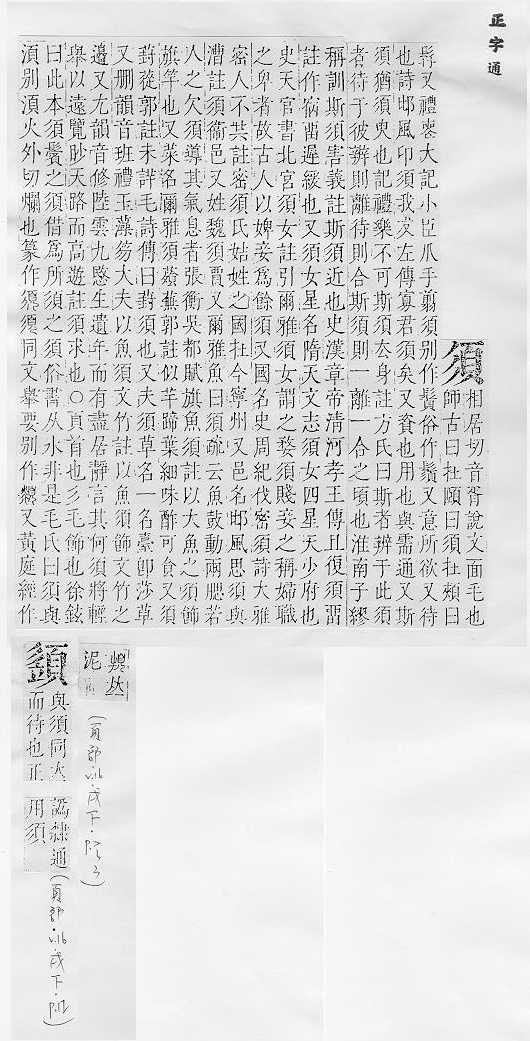 正字通
須相居切音胥說文面毛也
師古曰在頤曰須在頰曰
髥又禮喪大記小臣爪手翦須別作鬚俗作鬢又意所欲又待
也詩邶風卬須我友左傳寡君須矣又資也用也與需通又斯
須猶須臾也記禮樂不可斯須去身註方氏曰斯者辨于此須
者待于彼辨則離待則合斯須則一離一合之頃也淮南子繆
稱訓斯須害義註斯須近也史漢章帝清河孝王傳且復須畱
註作宿畱遲緩也又須女星名隋天文志須女四星天少府也
史天官書北宮須女註引爾雅須女謂之婺須賤妾之稱婦職
之卑者故古人以婢妾爲餘須又國名史周紀伐密須詩大雅
密人不共註密須氏姞姓之國在今寧州又邑名邶風思須與
漕註須衞邑又姓魏須賈又爾雅魚曰須疏云魚鼓動兩腮若
人之欠須導其氣息者張衡吳都賦旗魚須註以大魚之須飾
旗竿也又菜名爾雅須薞蕪郭註似羊蹄葉細味酢可食又須
葑蓯郭註未詳毛詩傳曰葑須也又夫須草名一名臺卽莎草
又刪韻音班禮玉藻笏大夫以魚須文竹註以魚須飾文竹之
邊又尤韻音修陸雲九愍生遺年而有盡居靜言其何須將輕
舉以遠覽眇天路而高遊註須求也○頁首也彡毛飾也徐鉉
曰此本須鬢之須借爲所須之須俗書从水非是毛氏曰須與
湏別湏火外切爛也篆作須同文舉要別作又黃庭經作
泥
(頁部·戌下)
與須同立
而待也正
譌隸通
用須
(頁部·戌下)